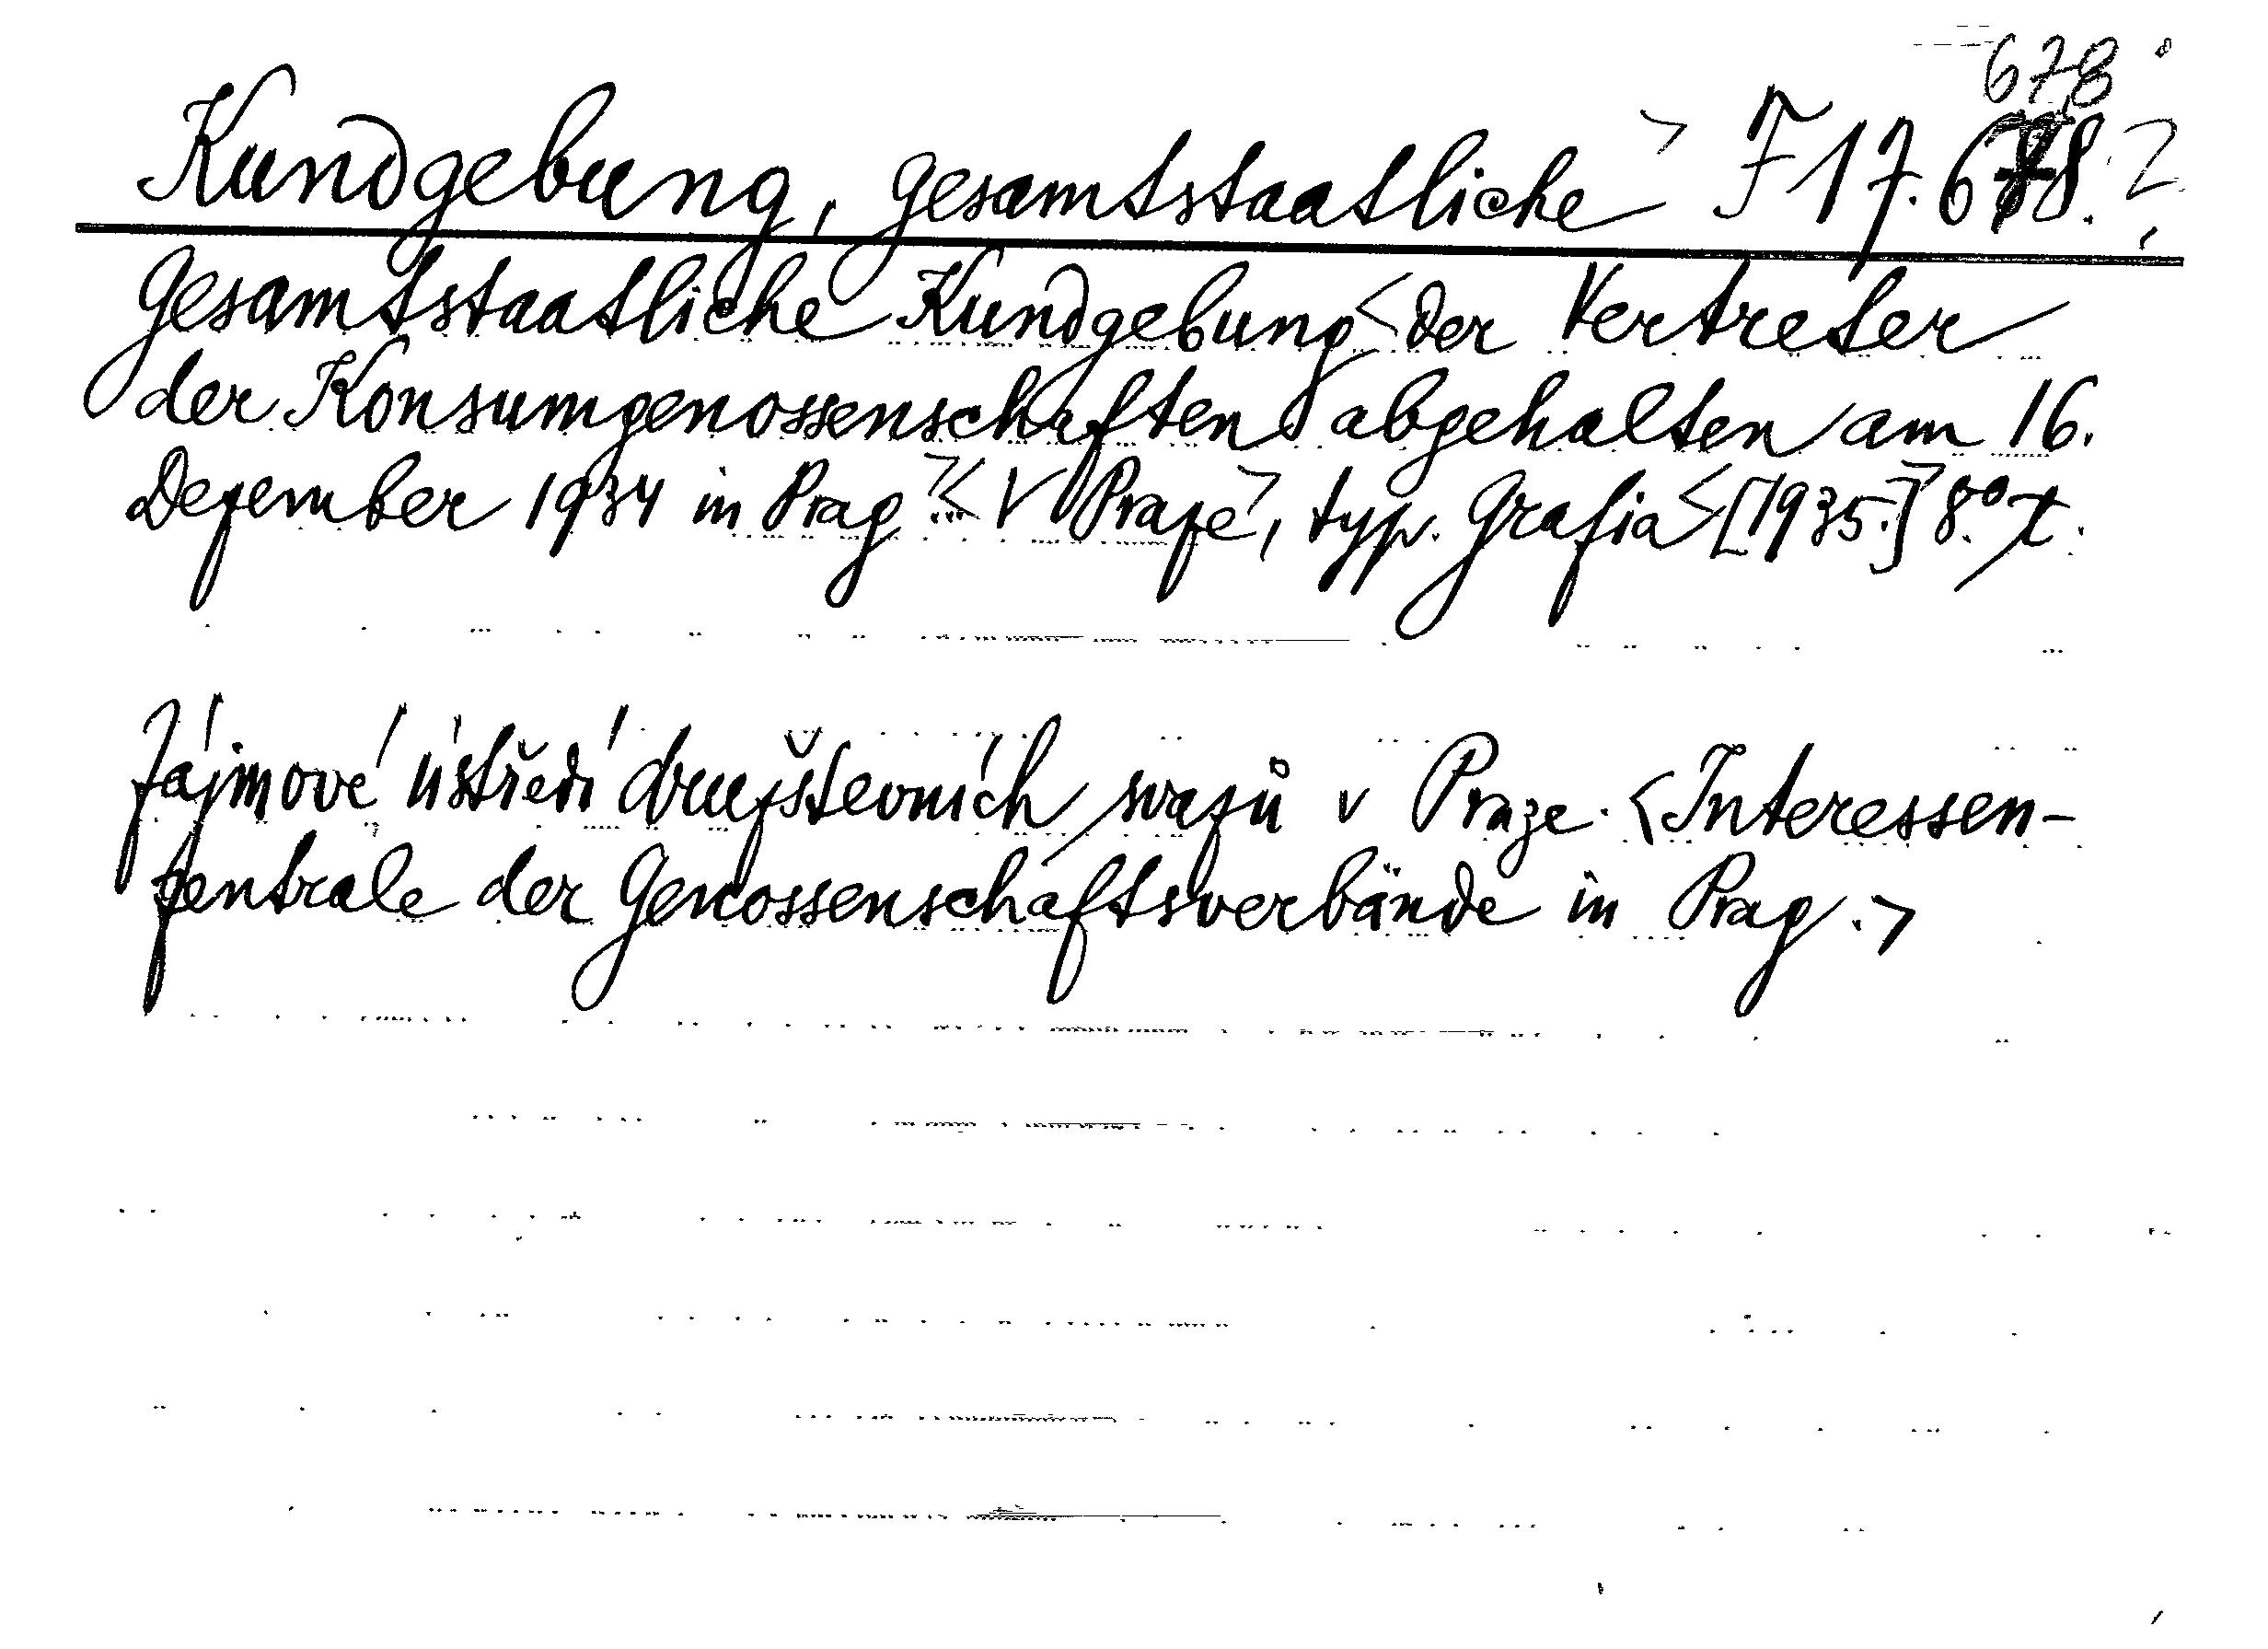 678
Kundgebung, gesamtstaatliche> F 17.678.
Gesamtstaatliche Kundgebung <der Vertreter
der Konsumgenossenschaften abgehalten am 16.
Dezember 1934 in Prag> <V Praze>, typ. Grafia <[1935.]> 8.°
Zájmové ústředí družstevních svazů v Praze. <Interessen-
zentrale der Genossenschaftsverbände in Prag.>